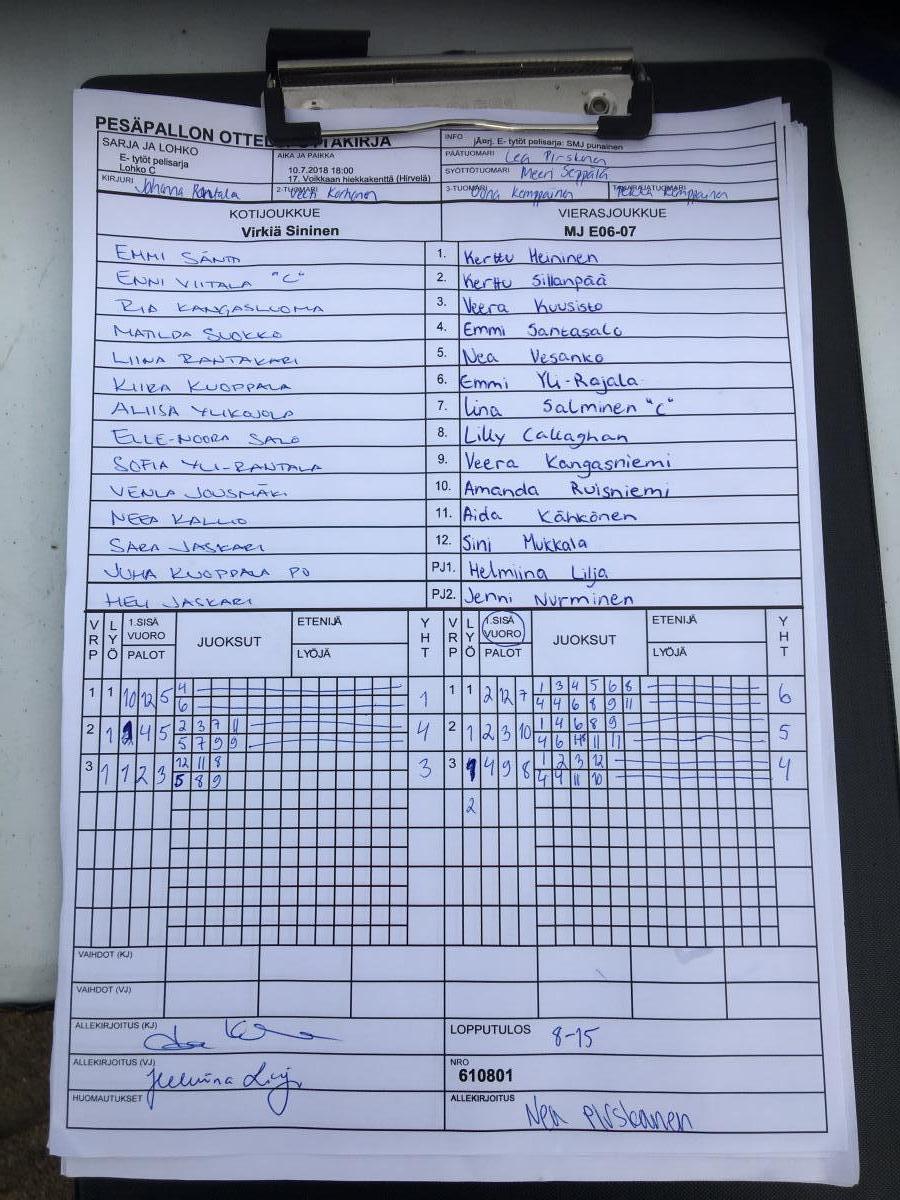 PESÄPALLON OTTEL
TAKIRJA
SARJA JA LOHKO
E- tytöt pelisarja
Lohko C
AIKA JA PAIKKA
10.7.2018 18:00
17. Voikkaan hiekkakenttä (Hirvelä)
INFO
jÄrj. E- tytöt pelisarja: SMJ punainen
PÄÄTUOMARI Lea Pirskanen
SYÖTTÖTUOMARI Meeri Seppälä
KIRJURI Johanna Rantala
2-TUOMARI Veeti Korhonen
3-TUOMARI Oona Kemppainen
Kemppainen
KOTIJOUKKUE VIERASJOUKKUE
Virkiä Sininen MJ E06-07
EMMI SÄNTI 1. Kerttu Heininen
ENNI VIITALA "C" 2. Kerttu Sillanpää
RIA KANGASLUOMA 3. Veera Kuusisto
MATILDA SUOKKO 4. Emmi Santasalo
LIINA RANTAKARI 5. Nea Vesanko
KIIRA KUOPPALA 6. Emmi Yli-Rajala
ALIISA YLIKOJOLA 7. Lina Salminen "C"
ELLE-NOORA SALO 8. Lilly Callaghan
SOFIA YLI-RANTALA 9. Veera Kangasniemi
VENLA JOUSMÄKI 10. Amanda Ruisniemi
NEEA KALLIO 11. Aida Kähkönen
SARA JASKARI 12. Sini Mukkala
JUHA KUOPPALA PO PJ1. Helmiina Lilja
HELI JASKARI PJ2. Jenni Nurminen
VRP LYÖ 1.SISÄ VUORO PALOT JUOKSUT ETENIJÄ LYÖJÄ YHT VRP LYÖ 1.SISÄ VUORO PALOT JUOKSUT ETENIJÄ LYÖJÄ YHT
1 1 10 12 5 4 1 1 1 2 12 7 1 3 4 5 6 8 6
6 4 4 6 8 9 11
2 1 1 4 5 2 3 7 11 4 2 1 2 3 10 1 4 6 8 9 5
5 7 9 9 4 6 11 11
3 1 1 2 3 12 11 8 3 3 1 4 9 8 1 2 3 12 4
5 8 9 4 4 11 10
2
VAIHDOT (KJ)
VAIHDOT (VJ)
ALLEKIRJOITUS (KJ)
LOPPUTULOS 8-15
ALLEKIRJOITUS (VJ) Helmiina Lilja
NRO
610801
HUOMAUTUKSET
ALLEKIRJOITUS Nea Pirskanen